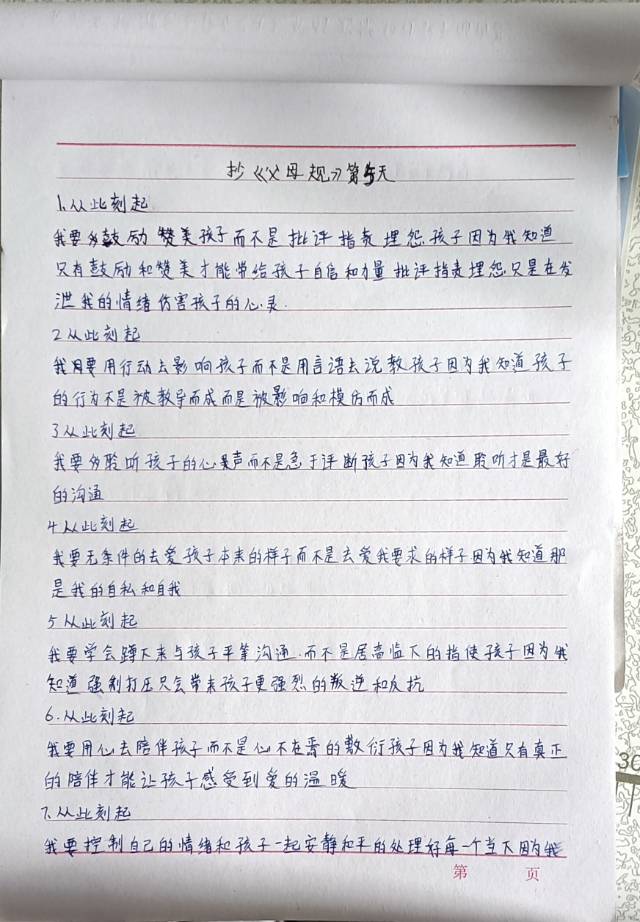 抄《父母规》第5天
1、从此刻起
我要多鼓励 赞美孩子而不是批评指责埋怨孩子因为我知道
只有鼓励和赞美才能带给孩子自信和力量 批评指责埋怨只是在发
泄我的情绪伤害孩子的心灵.
2 从此刻起
我要用行动去影响孩子而不是用言语去说教孩子因为我知道孩子
的行为不是被教导而成而是被影响和模仿而成
3 从此刻起
我要多聆听孩子的心声而不是急于评断孩子因为我知道聆听才是最好
的沟通
4 从此刻起
我要无条件的去爱孩子本来的样子而不是去爱我要求的样子因为我知道那
是我的自私和自我
5 从此刻起
我要学会蹲下来与孩子平等沟通.而不是居高临下的指使孩子因为我
知道强制打压只会带来孩子更强烈的叛逆和反抗
6.从此刻起
我要用心去陪伴孩子而不是心不在焉的敷衍孩子因为我知道只有真正
的陪伴才能让孩子感受到爱的温暖
7.从此刻起
我要控制自己的情绪和孩子一起安静和平的处理好每一个当下因为我
第 页
30